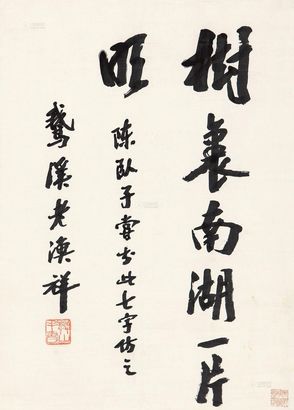 樹裏南湖一片
明
陳臥子嘗書此七字仿之
鵞溪老漁祥